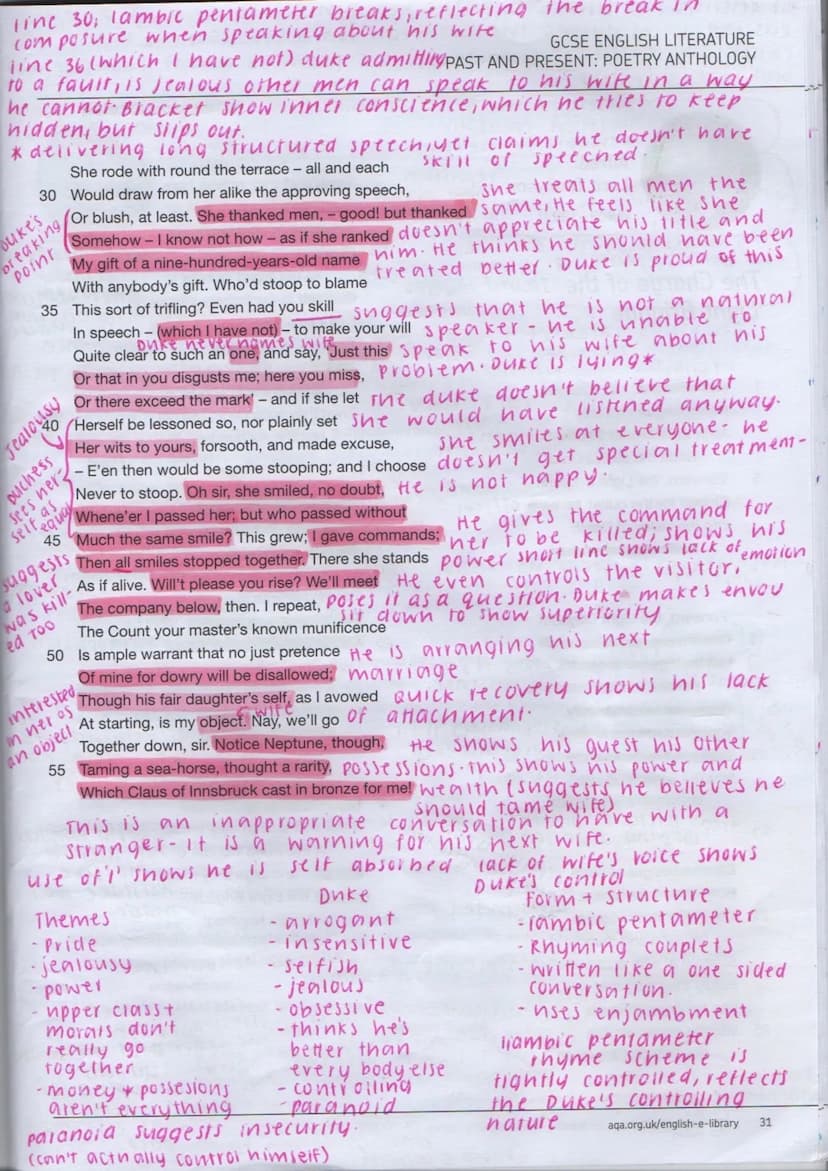 line 30; Iambic pentameter breaks, reflecting the break in
composure when speaking about his wife
GCSE ENGLISH LITERATURE
line 36 (which I have not) duke admitting
PAST AND PRESENT: POETRY ANTHOLOGY
to a fault, is jealous other men can speak to his wife in a way
he cannot. Bracket show inner conscience, which he tries to keep
hidden, but slips out.
* delivering long structured speech, yet claims he doesn't have
skill of speeched.
She rode with round the terrace – all and each
30 Would draw from her alike the approving speech,
Or blush, at least. She thanked men, – good! but thanked
Somehow – I know not how – as if she ranked
My gift of a nine-hundred-years-old name
With anybody's gift. Who'd stoop to blame
35 This sort of trifling? Even had you skill
In speech – (which I have not) – to make your will
Quite clear to such an one, and say, 'Just this
Or that in you disgusts me; here you miss,
Or there exceed the mark' – and if she let
40 Herself be lessoned so, nor plainly set
Her wits to yours, forsooth, and made excuse,
– E'en then would be some stooping; and I choose
Never to stoop. Oh sir, she smiled, no doubt,
Whene'er I passed her; but who passed without
45 Much the same smile? This grew; I gave commands;
Then all smiles stopped together. There she stands
As if alive. Will't please you rise? We'll meet
The company below, then. I repeat,
The Count your master's known munificence
50 Is ample warrant that no just pretence
Of mine for dowry will be disallowed;
Though his fair daughter's self, as I avowed
At starting, is my object. Nay, we'll go
Together down, sir. Notice Neptune, though,
55 Taming a sea-horse, thought a rarity,
Which Claus of Innsbruck cast in bronze for me!
Duke's
breaking
point
Jealousy
Duchess
sees her
self as
equal
suggests
a lover
was kill-
ed too
interested
in her as
an object
She treats all men the
same, He feels like she
doesn't appreciate his title and
him. He thinks he should have been
treated better. Duke is proud of this
suggests that he is not a natural
speaker - he is unable to
Duke never names wife
speak to his wife about his
problem. Duke is lying*
The duke doesn't believe that
she would have listened anyway.
she smiles at everyone - he
doesn't get special treatment -
He is not happy.
He gives the command for
her to be killed; shows his
power short line shows lack of emotion
He even controls the visitor,
poses it as a question. Duke makes envoy
sit down to show superiority
He is arranging his next
marriage
quick recovery shows his lack
wife
of attachment.
He shows his guest his other
possessions. This shows his power and
wealth (suggests he believes he
should tame wife)
This is an inappropriate conversation to have with a
stranger - it is a warning for his next wife.
use of 'I' shows he is self absorbed
lack of wife's voice shows
Duke's control
Themes
- Pride
- jealousy
- power
- upper class +
morals don't
really go
together
- money + possesions
aren't everything
Duke
- arrogant
- insensitive
- selfish
- jealous
- obsessive
- thinks he's
better than
every body else
- controlling
- paranoid
Form + structure
- iambic pentameter
- Rhyming couplets
- written like a one sided
conversation.
- uses enjambment
iambic pentameter
rhyme scheme is
tightly controlled, reflects
the Duke's controlling
nature
paranoid suggests insecurity.
(can't actually control himself)
aqa.org.uk/english-e-library 31